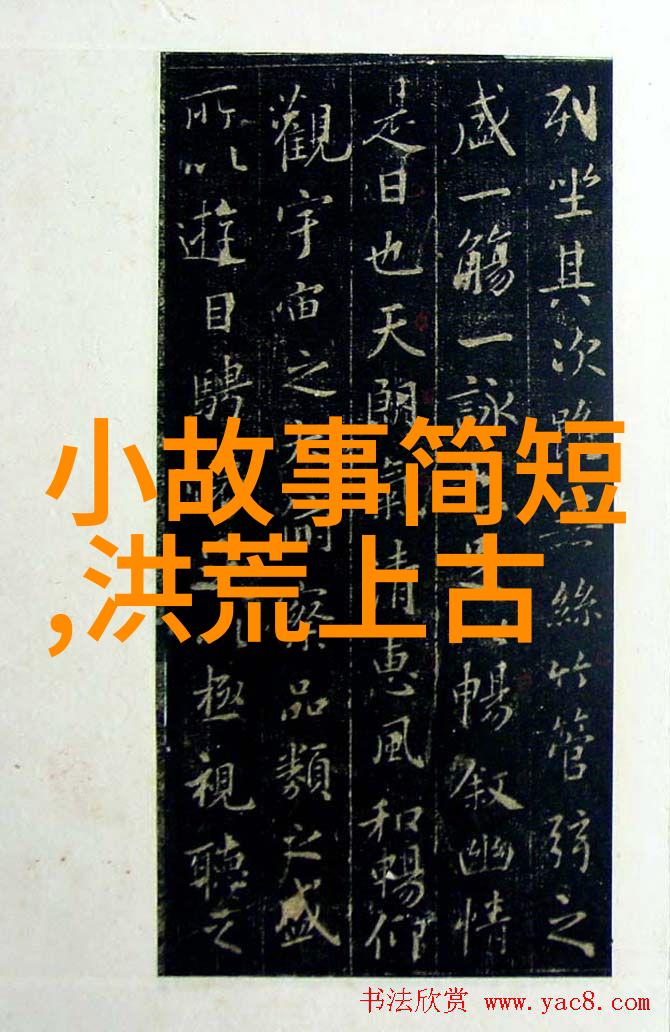 列坐其次雖無絲竹管弦之
盛一觴一詠暢叙幽情
是日也天朗氣清惠風和暢仰
觀宇宙之察品類之盛
所以遊目騁極視聽之
小故事简短
,洪荒上古
书法欣赏 www.yac8.com